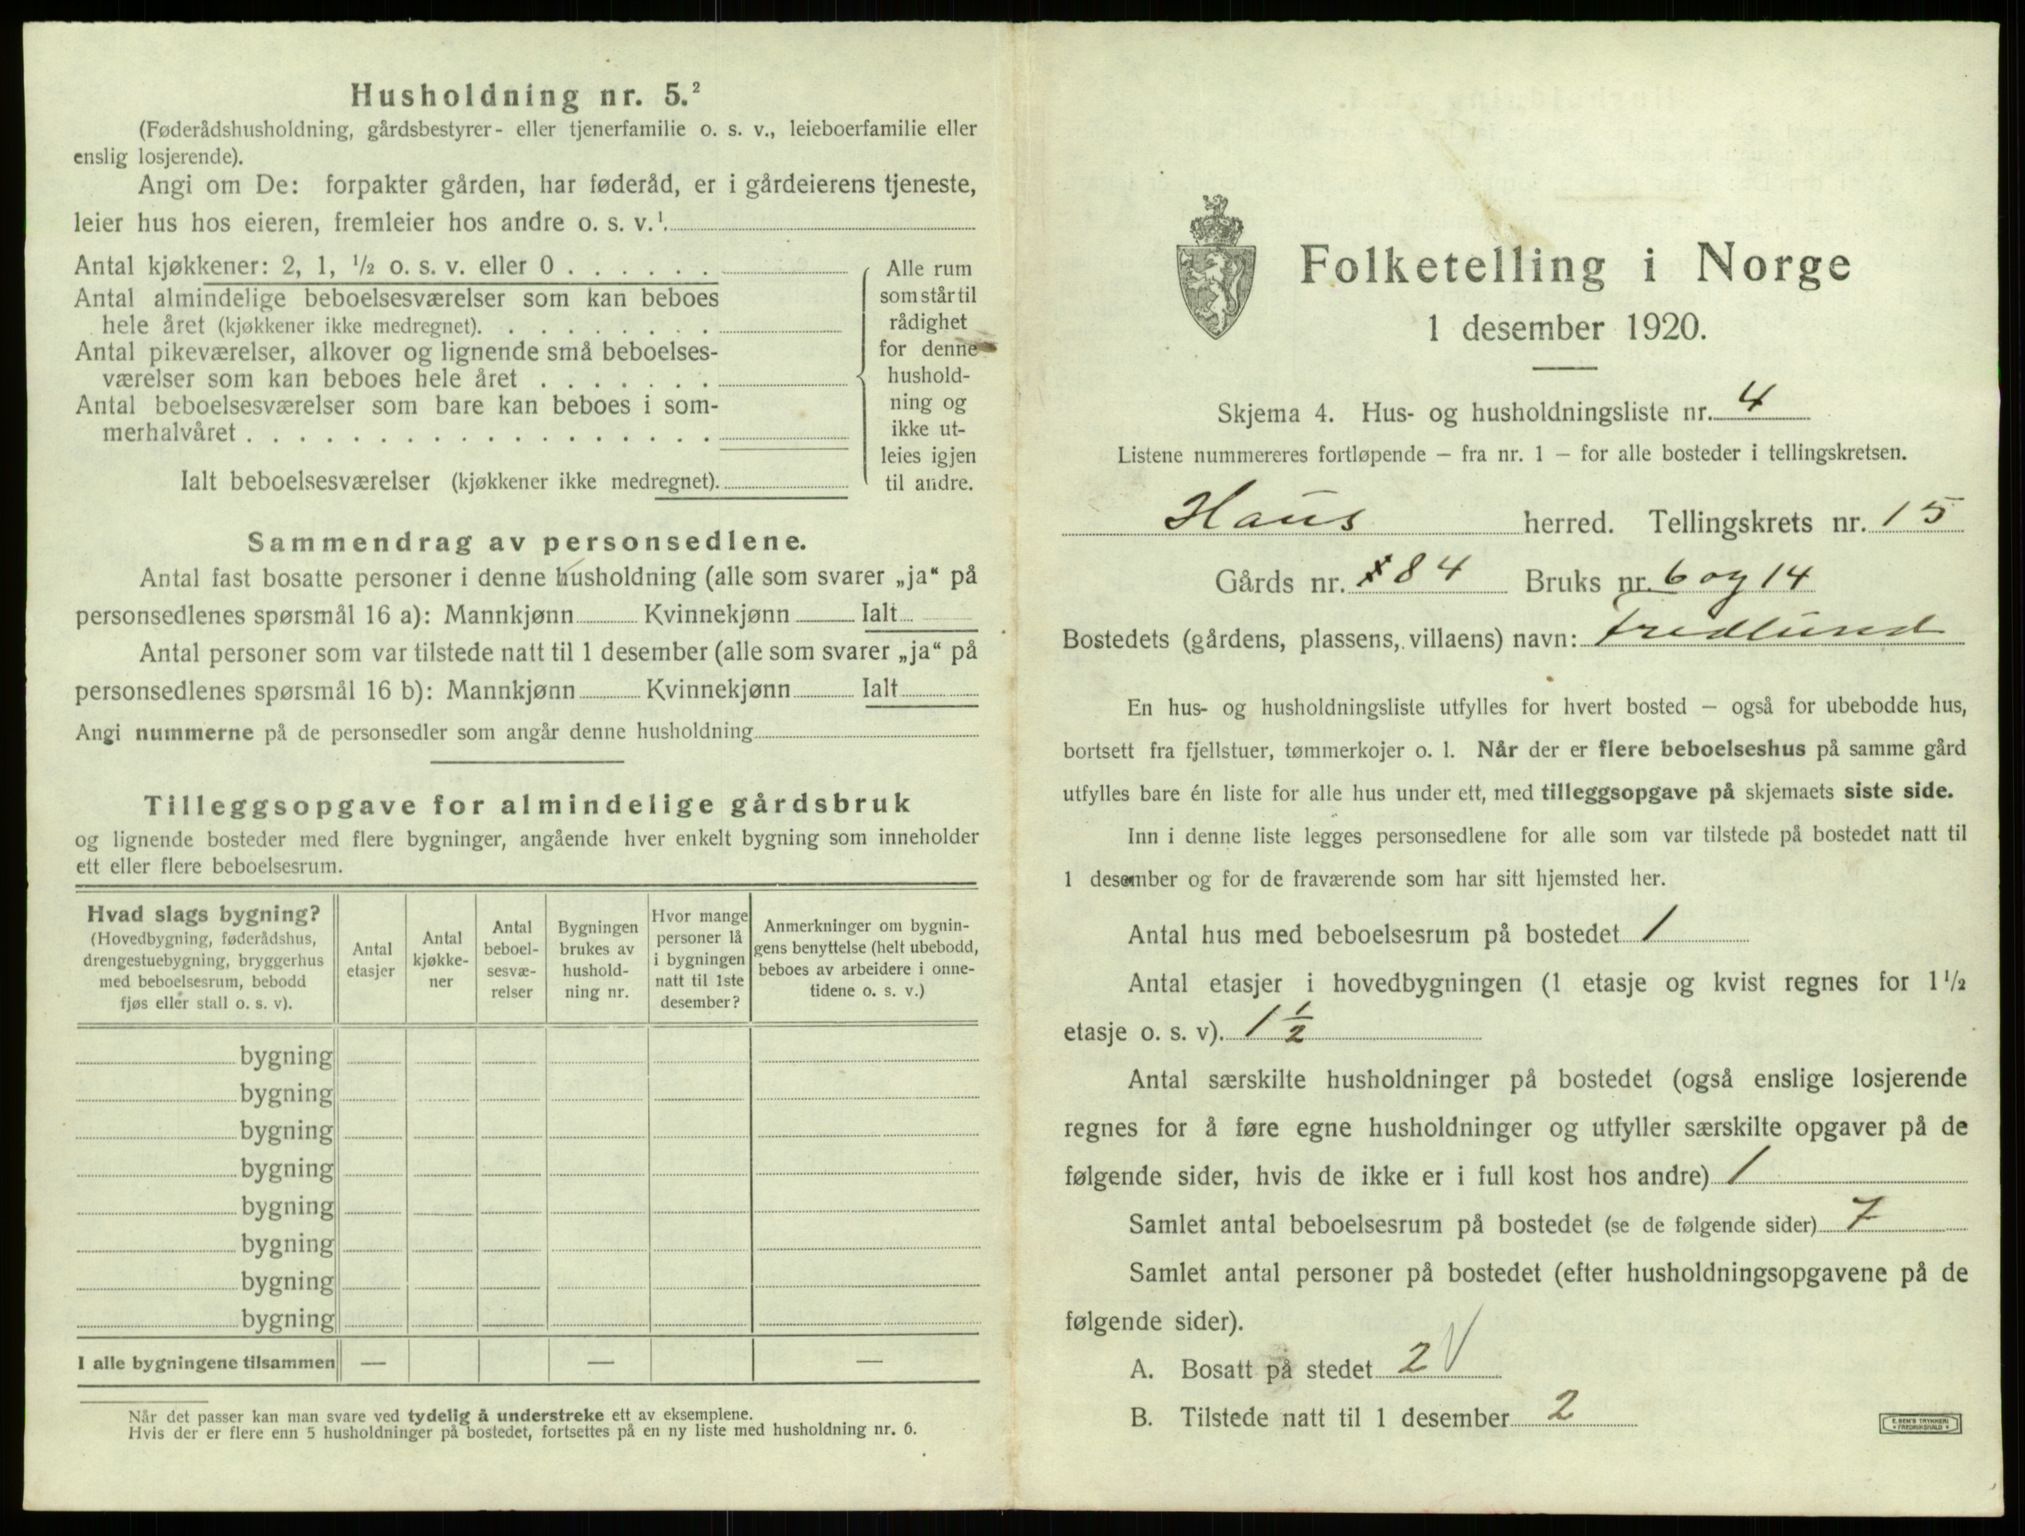 Husholdning nr. 5.²
(Føderådshusholdning, gårdsbestyrer- eller tjenerfamilie o. s. v., leieboerfamilie eller
enslig losjerende).
Angi om De: forpakter gården, har føderåd, er i gårdeierens tjeneste,
leier hus hos eieren, fremleier hos andre o. s. v.¹.
Antal kjøkkener: 2, 1, ½ o. s. v. eller 0 . . . . . .
Antal almindelige beboelsesværelser som kan beboes
hele året (kjøkkener ikke medregnet). . . . . . . . .
Antal pikeværelser, alkover og lignende små beboelses-
værelser som kan beboes hele året . . . . . . .
Antal beboelsesværelser som bare kan beboes i som-
merhalvåret . . . . . . . . . . . . . . . . . .
Ialt beboelsesværelser (kjøkkener ikke medregnet).
Alle rum
som står til
rådighet
for denne
hushold-
ning og
ikke ut-
leies igjen
til andre.
Sammendrag av personsedlene.
Antal fast bosatte personer i denne husholdning (alle som svarer „ja“ på
personsedlenes spørsmål 16 a): Mannkjønn Kvinnekjønn Ialt
Antal personer som var tilstede natt til 1 desember (alle som svarer „ja“ på
personsedlenes spørsmål 16 b): Mannkjønn Kvinnekjønn Ialt
Angi nummerne på de personsedler som angår denne husholdning
Tilleggsopgave for almindelige gårdsbruk
og lignende bosteder med flere bygninger, angående hver enkelt bygning som inneholder
ett eller flere beboelsesrum.
Hvad slags bygning?
(Hovedbygning, føderådshus,
drengestuebygning, bryggerhus
med beboelsesrum, bebodd
fjøs eller stall o. s. v).
Antal
etasjer
Antal
kjøkke-
ner
Antal
beboel-
sesvæ-
relser
Bygningen
brukes av
hushold-
ning nr.
Hvor mange
personer lå
i bygningen
natt til 1ste
desember?
Anmerkninger om bygnin-
gens benyttelse (helt ubebodd,
beboes av arbeidere i onne-
tidene o. s. v.)
bygning
bygning
bygning
bygning
bygning
bygning
bygning
bygning
I alle bygningene tilsammen — — —
Når det passer kan man svare ved tydelig å understreke ett av eksemplene.
Hvis der er flere enn 5 husholdninger på bostedet, fortsettes på en ny liste med husholdning nr. 6.
Folketelling i Norge
1 desember 1920.
Skjema 4. Hus- og husholdningsliste nr. 4
Listene nummereres fortløpende – fra nr. 1 – for alle bosteder i tellingskretsen.
Haus herred. Tellingskrets nr. 15
Gårds nr. 84 Bruks nr. 6 og 14
Bostedets (gårdens, plassens, villaens) navn: Fredlund
En hus- og husholdningsliste utfylles for hvert bosted – også for ubebodde hus,
bortsett fra fjellstuer, tømmerkojer o. l. Når der er flere beboelseshus på samme gård
utfylles bare én liste for alle hus under ett, med tilleggsopgave på skjemaets siste side.
Inn i denne liste legges personsedlene for alle som var tilstede på bostedet natt til
1 desember og for de fraværende som har sitt hjemsted her.
Antal hus med beboelsesrum på bostedet 1
Antal etasjer i hovedbygningen (1 etasje og kvist regnes for 1½
etasje o. s. v). 1½
Antal særskilte husholdninger på bostedet (også enslige losjerende
regnes for å føre egne husholdninger og utfyller særskilte opgaver på de
følgende sider, hvis de ikke er i full kost hos andre) 1
Samlet antal beboelsesrum på bostedet (se de følgende sider) 7
Samlet antal personer på bostedet (efter husholdningsopgavene på de
følgende sider).
A. Bosatt på stedet 2
B. Tilstede natt til 1 desember 2